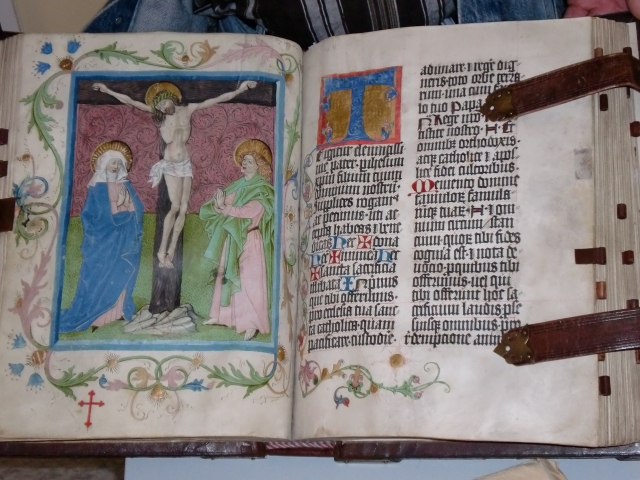 T
e igitur clementissi
me pater p
filium tuum
dominum nostrū
supplices rogam
ac petimus
habeas et bene
dicas Hec dona
Hec munera Hec
sancta sacrificia
illibata
que tibi offerimus
pro ecclesia tua san
cta catholica quam
pacificare custodire
adunare et regere dig
neris toto orbe terra
una cum
lo tuo Papa
Rege nro
stite nostro N Et
omnibus orthodoxis
atqȝ catholice et aps
lice fidei cultoribus
Memento domine
famulorūqȝ famula
rūqȝ tuarū N Et om
nium circum stan
tium quorū tibi fides
cognita est et nota de
uotio p quibus tibi
offerimus uel qui
tibi offerunt hoc sa
crificium laudis p se
suisqȝ omnibus pro
redemptione animarū